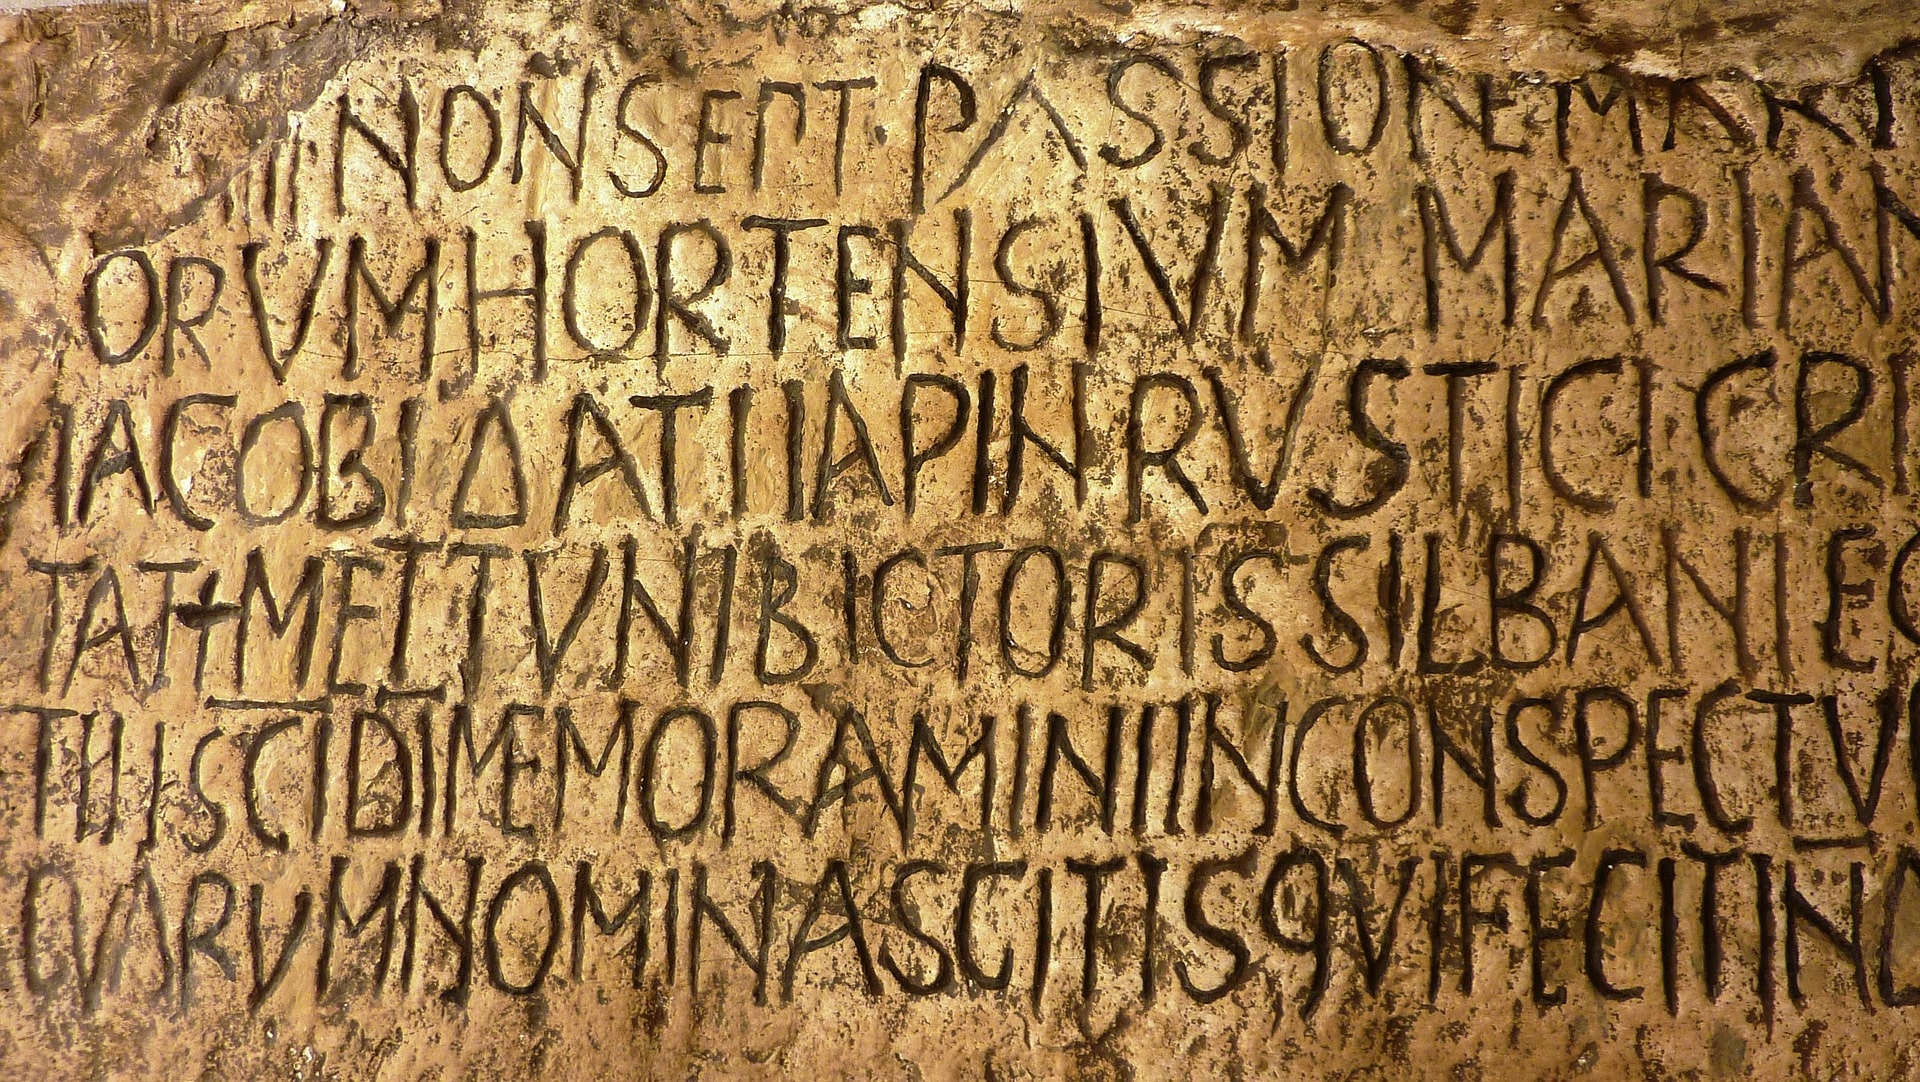 II NON SEPT · PASSIONE MARTI
ORVM HORTENSIVM MARIAN
IACOBI ΔATI IAPIN RVSTICI CRI
TAT+METTVNI BICTORIS SILBANI EG
TII SCI DI MEMORAMINI IN CONSPECTV
QVARVM NOMINA SCIT IS QVI FECIT IN D